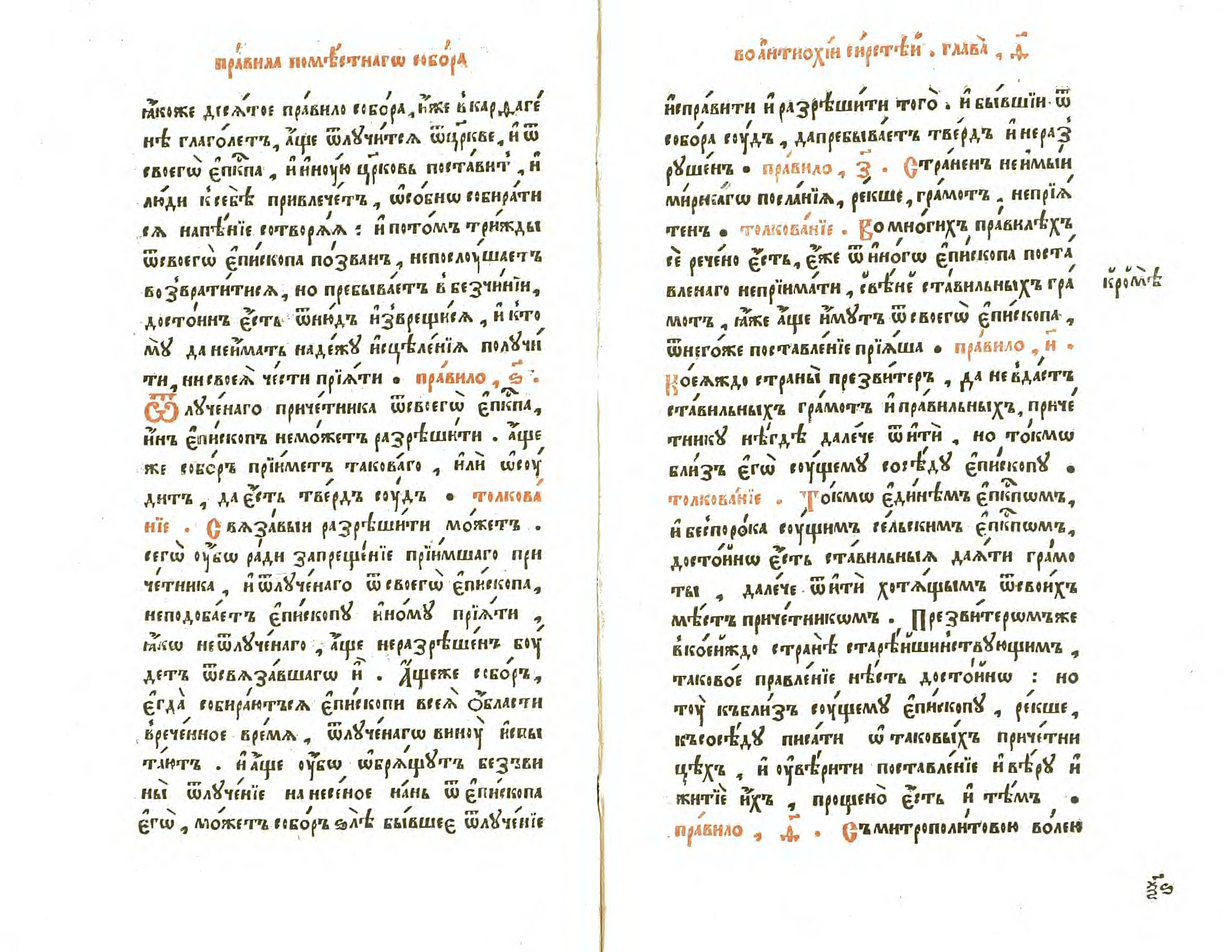 пра́вила помѣ́стнагѡ собо́ра
ꙗ҆́коже дєсѧ́тое пра́вило собо́ра, и҆́же в̾карѳаге́
нѣ глаго́летъ, а҆́ще ѿлꙋчи́тсѧ ѿцр҃кве, и҆ ѿ
своегѡ̀ є҆пⷭ҇кпа , и҆ и҆нꙋ́ю цр҃ковь поста́вит̾ , и҆
лю́ди к̾себѣ̀ привлече́тъ , ѡ҆со́бнѡ собира́ти
сѧ напѣ́нїе сотворѧ́ѧ : и҆ пото́мъ три́жды
ѿсвоегѡ̀ є҆пи́скопа по́званъ , непослꙋ́шаетъ
возврати́тисѧ , но пребыва́етъ в̾безчи́нїи,
досто́инъ є҆́сть ѿню́дъ и҆зврещи́сѧ , и҆ кто
мꙋ̀ да неи҆́мать наде́жꙋ и҆сцѣле́нїѧ полꙋчи́
ти, ни своеѧ̀ че́сти прїѧ́ти • пра́вило , ѕ҃ .
Ѿлꙋче́наго приче́тника ѿсвоегѡ̀ є҆пⷭ҇кпа,
и҆́нъ є҆пи́скопъ немо́жетъ разрѣши́ти . а҆́ще
же собо́ръ прїи́метъ таково́го , и҆лѝ ѡ҆сꙋ́
дитъ , да є҆́сть тве́рдъ сꙋ́дъ • толкова́
нїе . Свѧза́выи разрѣши́ти мо́жетъ .
сегѡ̀ ᲂу҆́бѡ ра́ди запреще́нїе прїи́мшаго при
че́тника , и҆ ѿлꙋче́наго ѿ своегѡ̀ є҆пи́скопа,
неподоба́етъ є҆пи́скопꙋ и҆но́мꙋ прїѧ́ти ,
ꙗ҆́кѡ неѿлꙋче́наго , а҆́ще неразрѣше́нъ бꙋ́
детъ ѿсвѧза́вшагѡ и҆̀ . А҆́щеже собо́ръ,
є҆гда̀ собира́ютъсѧ є҆пи́скопи всеѧ̀ ѻ҆́бласти
в̾рече́нное вре́мѧ , ѿлꙋче́нагѡ винꙋ̀ и҆спы
та́ют̾ . и҆ а҆́ще ᲂу҆́бѡ ѡ҆брѧ́щꙋтъ безъви
ны̀ ѿлꙋче́нїе на несе́ное на́нь ѿ є҆пи́скопа
є҆гѡ̀ , мо́жетъ собо́ръ ѕлѣ̀ бы́вшеє ѿлꙋче́нїе
во а҆нтиохі́и си́рстѣй . глава̀ , д҃
и҆спра́вити и҆ разрѣши́ти того̀ . и҆ бы́вшїи ѿ
собо́ра сꙋ́дъ , да пребыва́етъ тве́рдъ и҆ нераз̾
рꙋше́нъ • пра́вило , з҃ . Стра́ненъ не и҆мы́и
ми́рнкагѡ посла́нїѧ, ре́кше, гра́мотъ , непрїѧ́
тенъ • толкова́нїе . Во мно́гихъ пра́вилѣхъ
сѐ рече́но є҆́сть, є҆́же ѿ и҆но́гѡ є҆пи́скопа поста́
вленаго непрїима́ти , свѣ́не ста́вильныхъ гра́
кромѣ̀
мотъ , ꙗ҆̀же а҆́ще и҆́мꙋтъ ѿсвоегѡ̀ є҆пи́скопа ,
ѿнего́же поставле́нїе прїѧ́ша • пра́вило , и҃ .
Коеѧ́ждо страны̀ презви́теръ , да не в̾да́стъ
ста́вильныхъ гра́мотъ и҆ пра́вильныхъ, приче́
тникꙋ нѣ́гдѣ дале́че ѿ итѝ , но то́кмѡ
бли́зъ є҆гѡ̀ сꙋ́щемꙋ сосѣ́дꙋ є҆пи́скопꙋ •
толкова́нїе . То́кмѡ є҆ди́нѣмъ є҆пⷭ҇кпѡмъ,
и҆ беспоро́ка сꙋ́щимъ се́льскимъ є҆пⷭ҇кпѡмъ,
досто́йнѡ є҆́сть ста́вильныѧ даѧ́ти гра́мо
ты , дале́че ѿ итѝ хотѧ́щымъ ѿсвои́хъ
мѣ́стъ приче́тникѡмъ . Презви́терѡмъже
в̾кое́йждо странѣ̀ старѣ́йшинствꙋющимъ ,
таково́е правле́нїе нѣ́сть досто́йнѡ : но
тꙋ̀ къбли́зъ сꙋ́щемꙋ є҆пи́скопꙋ , ре́кше,
къ сосѣ́дꙋ писа́ти ѡ҆ таковы́хъ приче́тни
цѣхъ , и҆ ᲂу҆вѣ́рити поставле́нїе и҆ вѣ́рꙋ и҆
житїѐ и҆́хъ , проще́но є҆́сть и҆ тѣ́мъ •
пра́вило , д҃ . Съ митрополи́товою во́лею